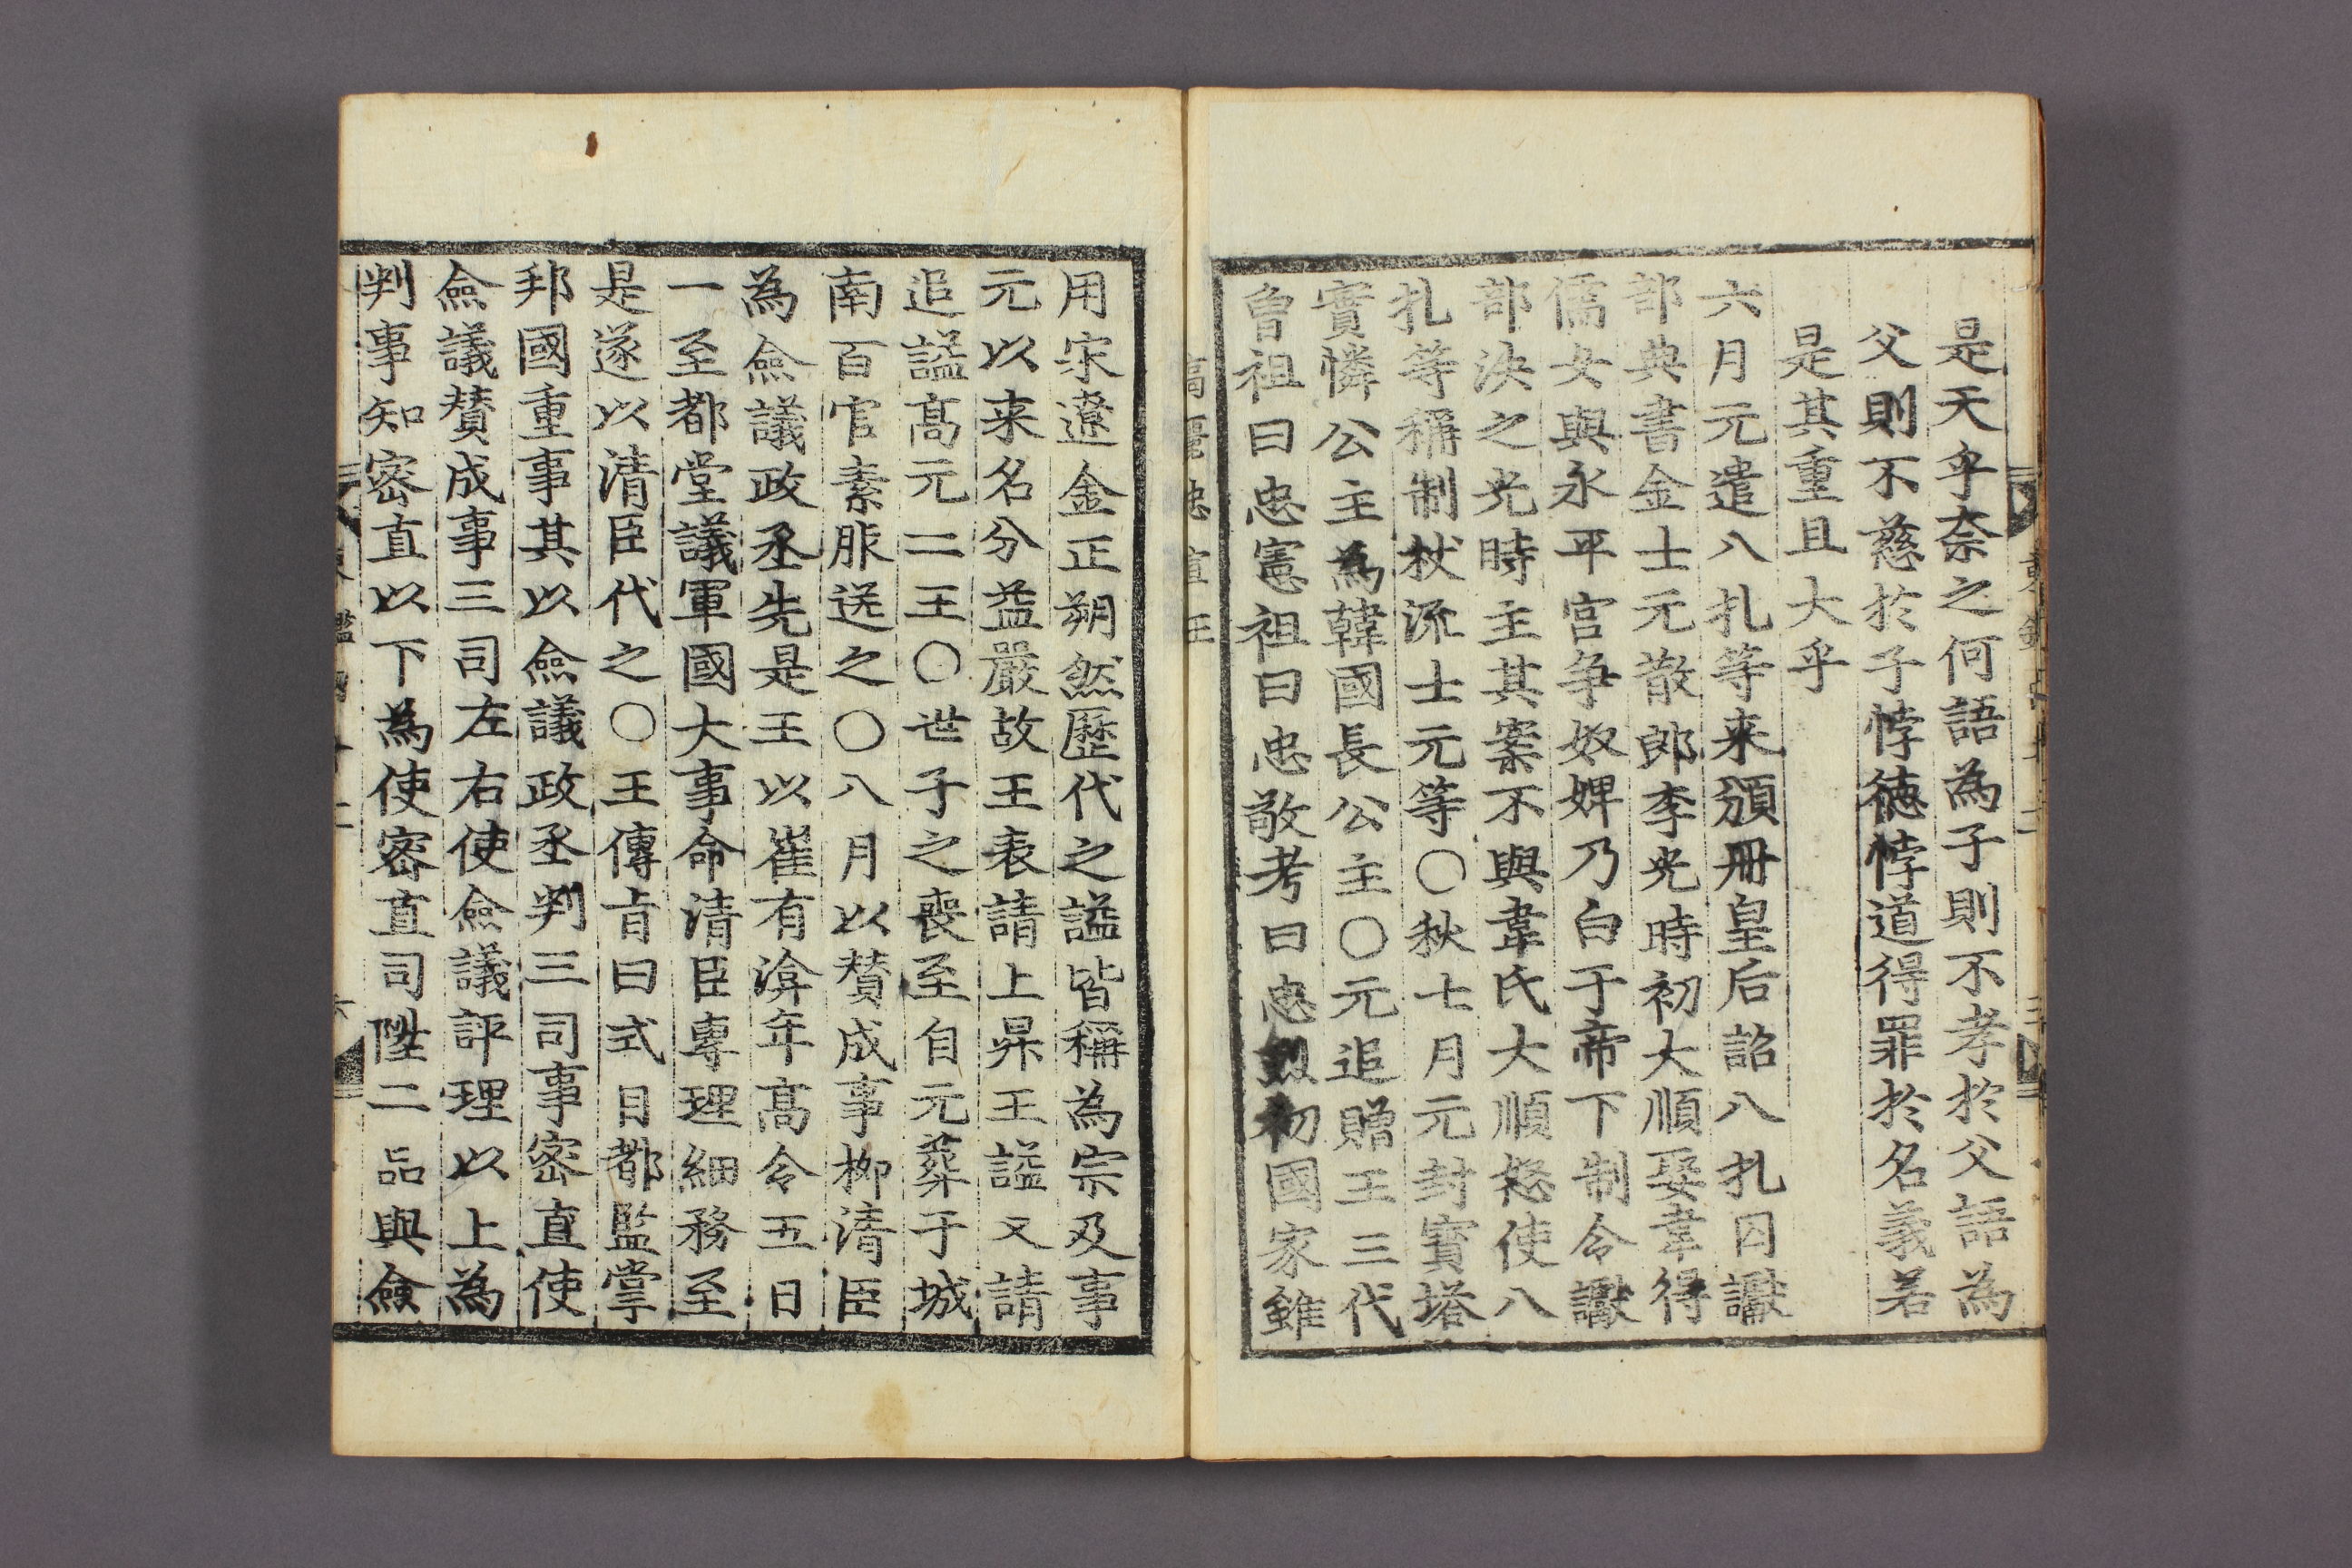 是天乎奈之何語為子則不孝於父語為
父則不慈於子悖徳悖道得罪於名義若
是其重且大乎
六月元遣八扎等来頒冊皇后詔八扎囚讞
部典書金士元散郎李光時初大順娶韋得
儒女與永平宮争奴婢乃白于帝下制令讞
部決之光時主其案不與韋氏大順怒使八
扎等稱制杖流士元等〇秋七月元封寳塔
實憐公主為韓國長公主〇元追贈王三代
曾祖曰忠憲祖曰忠敬考曰忠烈初國家雖
用宋遼金正朔然歷代之謚皆稱為宗及事
元以来名分益嚴故王表請上昇王謚又請
追謚髙元二王〇世子之喪至自元葬于城
南百官素服送之〇八月以賛成事柳清臣
為僉議政丞先是王以崔有渰年髙令五日
一至都堂議軍國大事命清臣專理細務至
是遂以清臣代之〇王傳㫖曰式目都監掌
邦國重事其以僉議政丞判三司事密直使
僉議賛成事三司左右使僉議評理以上為
判事知密直以下為使密直司陞二品與僉